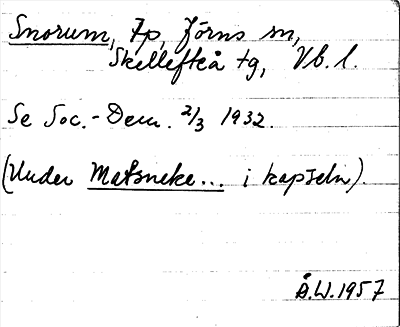 Snorum, Fp, Jörns sn,
Skellefteå tg, Vb. l.
Se Soc.-Dem. 2/3 1932.
(Under Matsneke... i kapseln).
Å.W.1957